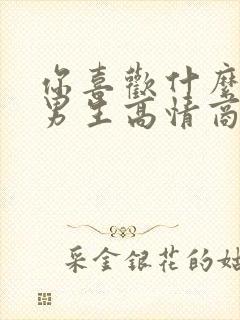 你喜歡什麼
男生高情商
采金銀花的姑